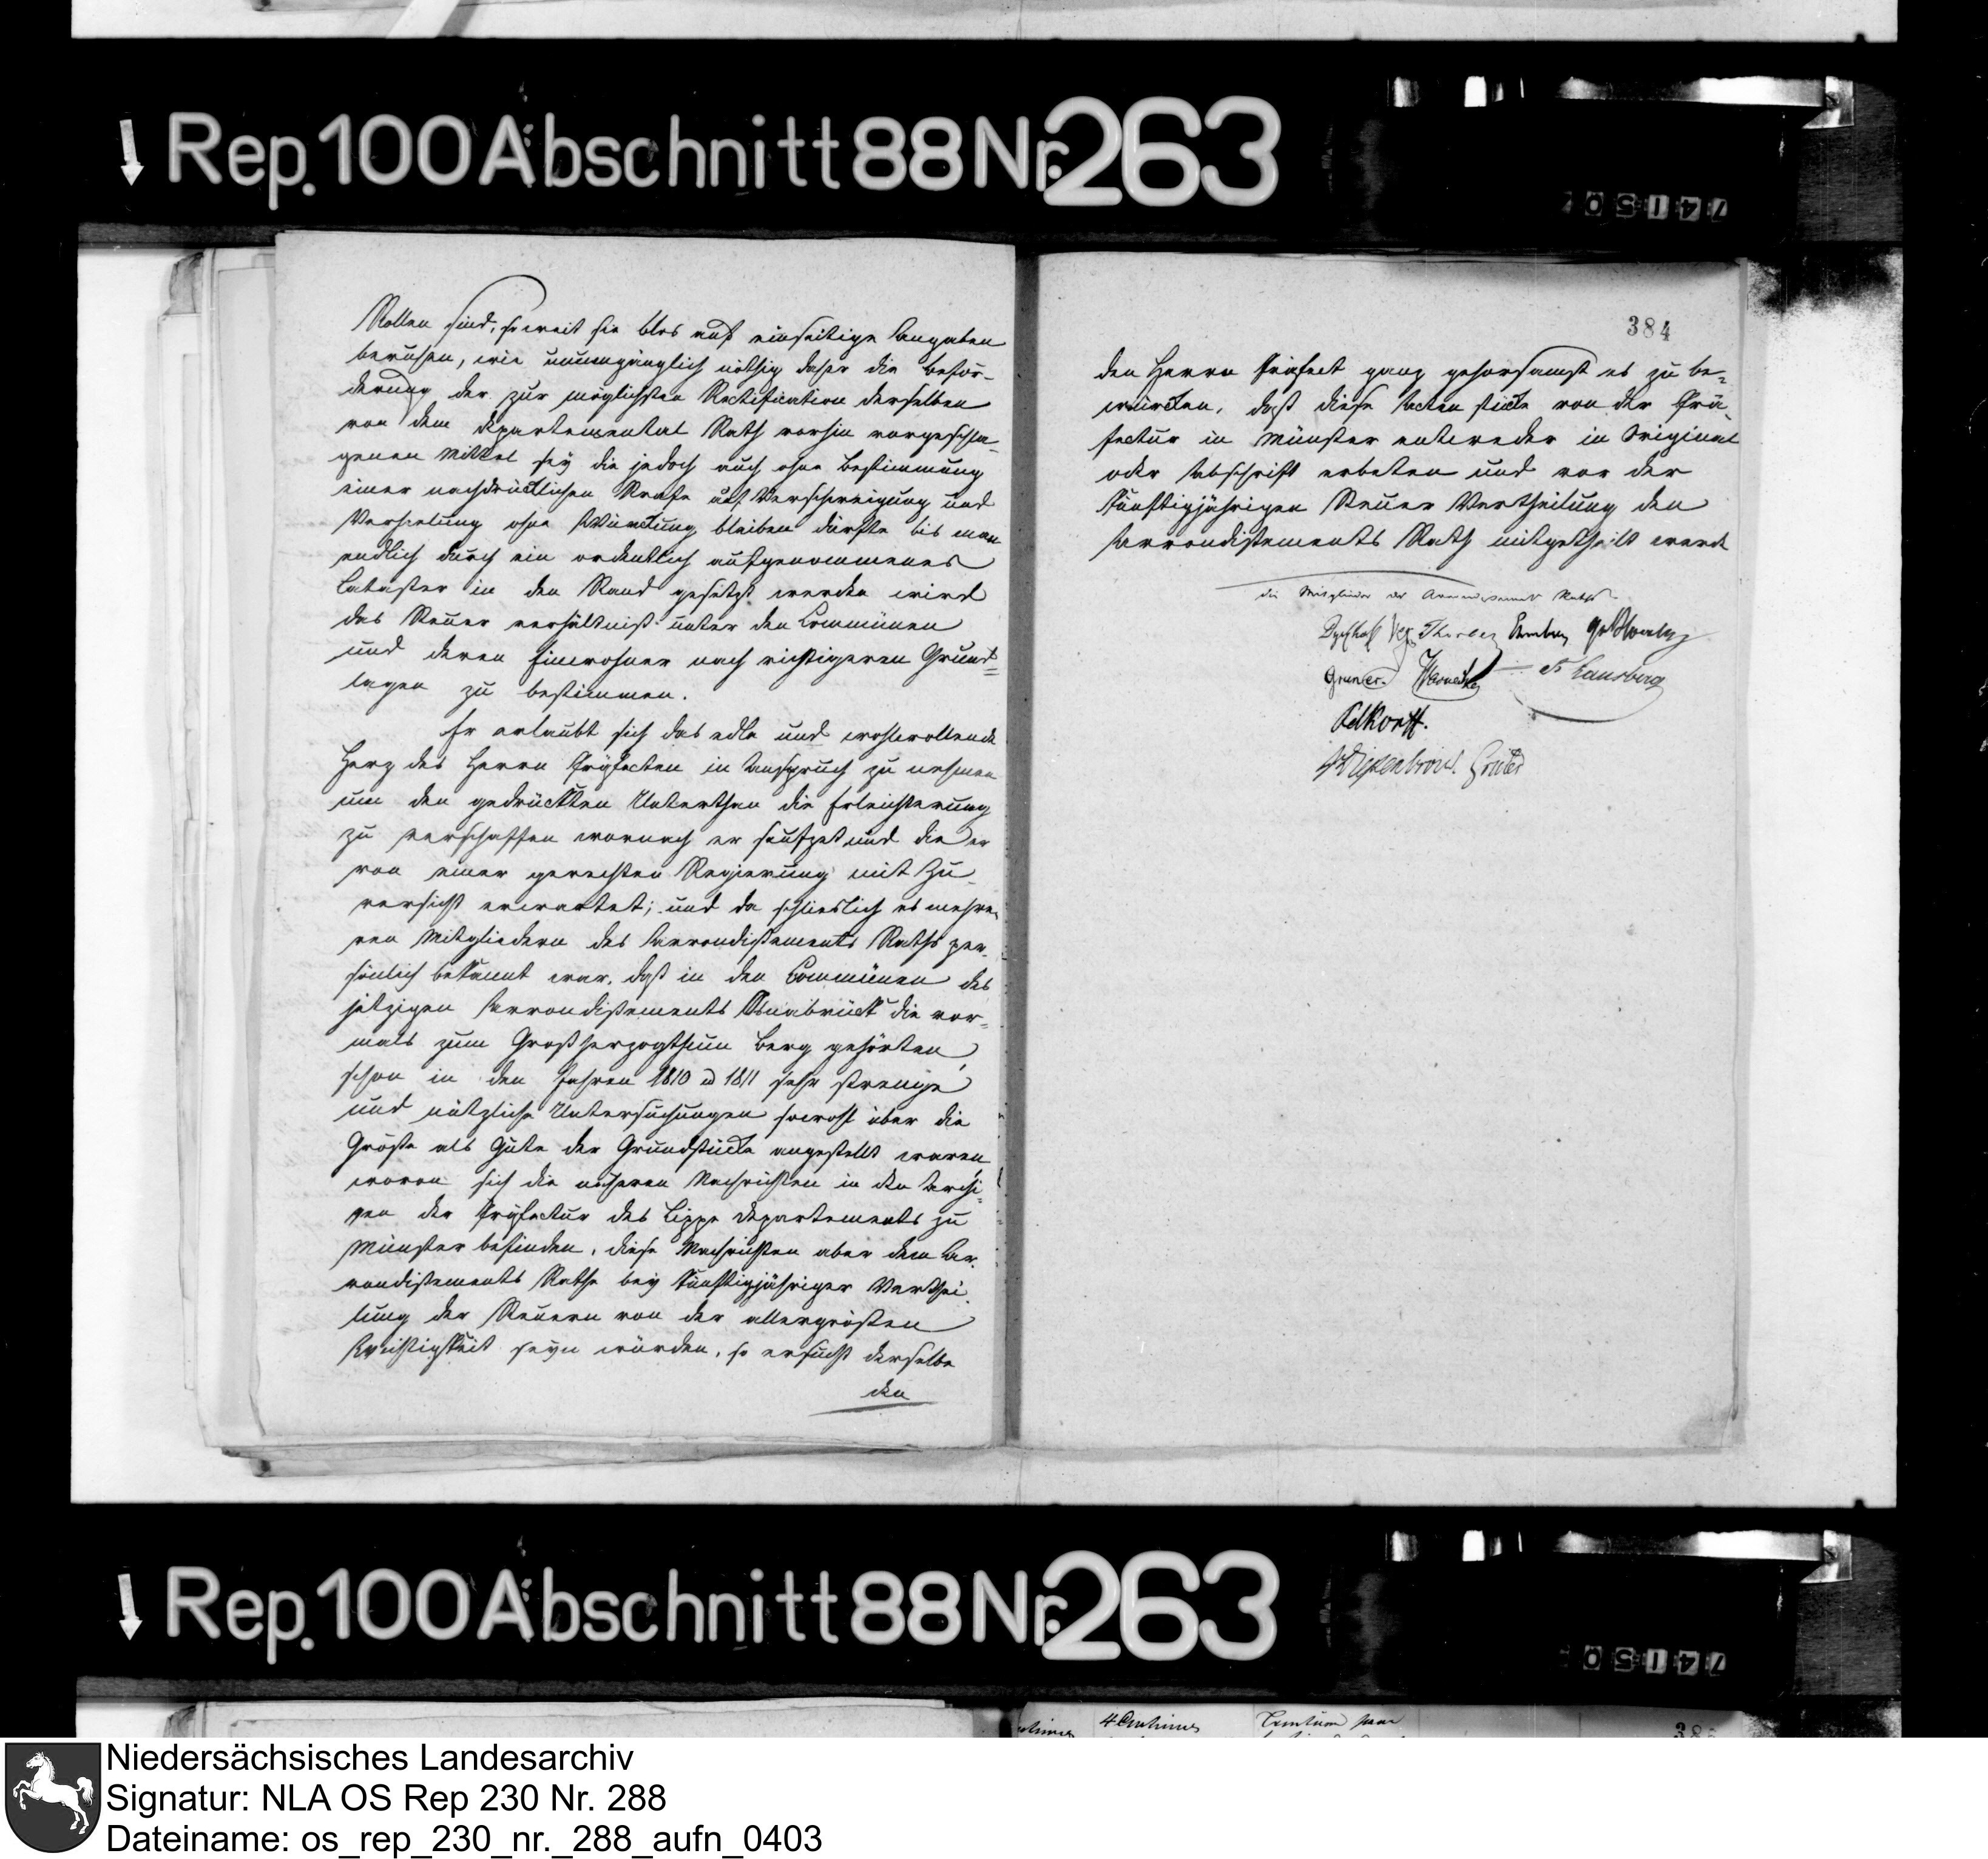 Rep. 100 Abschnitt 88 Nr. 263
Rollen sind, soweit sie blos auf einseitige Angaben
beruhen, wie unumgänglich nöthig daher die Beför-
derung der zur möglichsten Rectification derselben
von dem Departemental Rath vorhin vorgeschla-
genen Mittel sey die jedoch auch ohne Bestimmung
einer nachdrücklichen Strafe auf Verschweigung und
Verhelung ohne Würckung bleiben dürfte bis man
endlich durch ein ordentlich aufgenommenes
Cataster in den Stand gesetzt werden wird
das Steuer verhältniß unter den Communen
und deren Einwohner nach richtigeren Grund=
lagen zu bestimmen.
Er erlaubt sich das edle und wohlwollende
Herz des Herrn Präfecten in Anspruch zu nehmen
um den gedrückten Unterthan die Erleichterung
zu verschaffen wornach er seufzet und die er
von einer gerechten Regierung mit Zu-
versicht erwartet; und da schlieslich es mehre-
ren Mitgliedern des Arrondissements Raths per-
sönlich bekannt war, daß in den Communen des
jetzigen Arrondissements Osnabrück die vor=
mals zum Großherzogthum Berg gehörten,
schon in den Jahren 1810 u 1811 sehr strenge
und nützliche Untersuchungen sowohl über die
Größe als Güte der Grundstücke angestellt waren
wovon sich die näheren Nachrichten in den Archi=
ven der Präfectur des Lippe Departements zu
Münster befinden, diese Nachrichten aber dem Ar-
rondissements Rathe bey künftigjähriger Verthei-
lung der Steuern von der allergrößten
Wichtigkeit seyn würden, so ersucht derselbe
den
384
den Herrn Präfect ganz gehorsamst es zu be=
würcken, daß diese Actenstücke von der Prä-
fectur in Münster entweder in Original
oder Abschrift erbeten und vor der
künftigjährigen Steuer Vertheilung den
Arrondissements Rath mitgetheilt werde
die Mitglieder des Arrondissements Raths
Gruner. Warnecke
v Korff.
Grüter
Rep. 100 Abschnitt 88 Nr. 263
4 Centimes
Niedersächsisches Landesarchiv
Signatur: NLA OS Rep 230 Nr. 288
Dateiname: os_rep_230_nr._288_aufn_0403